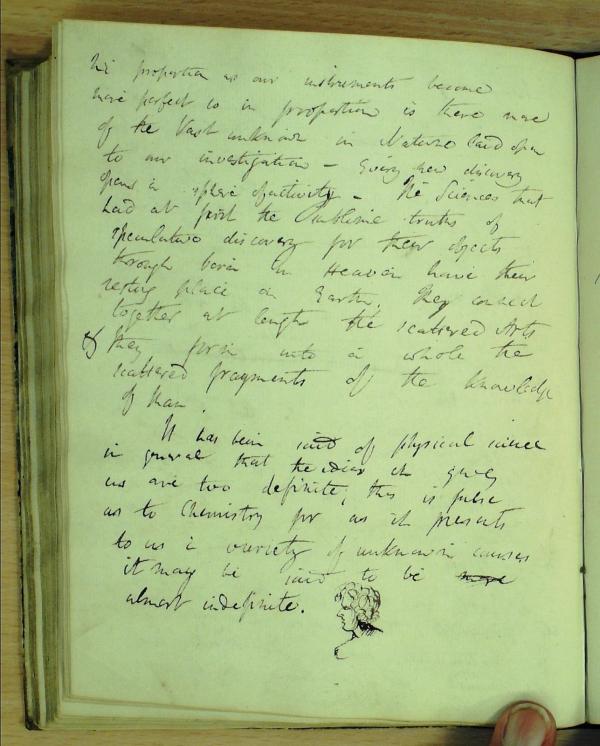 In proportion as our instruments become
more perfect so in proportion is there more
of the Vast unknown in Nature laid open
to our investigation – Every new discovery
opens a sphere of activity – The Sciences that
had at first the sublime truths of
speculative discovery for their objects
through born in Heaven have their
resting place on Earth. They connect
together at length the scattered Arts
& They form into a whole the
scattered fragments of the knowledge
of Man.
It has been said of physical science
in general that the ideas it gives
us are too definite; this is false
as to Chemistry for as it presents
to us a variety of unknown causes
it may be said to be more
almost indefinite.